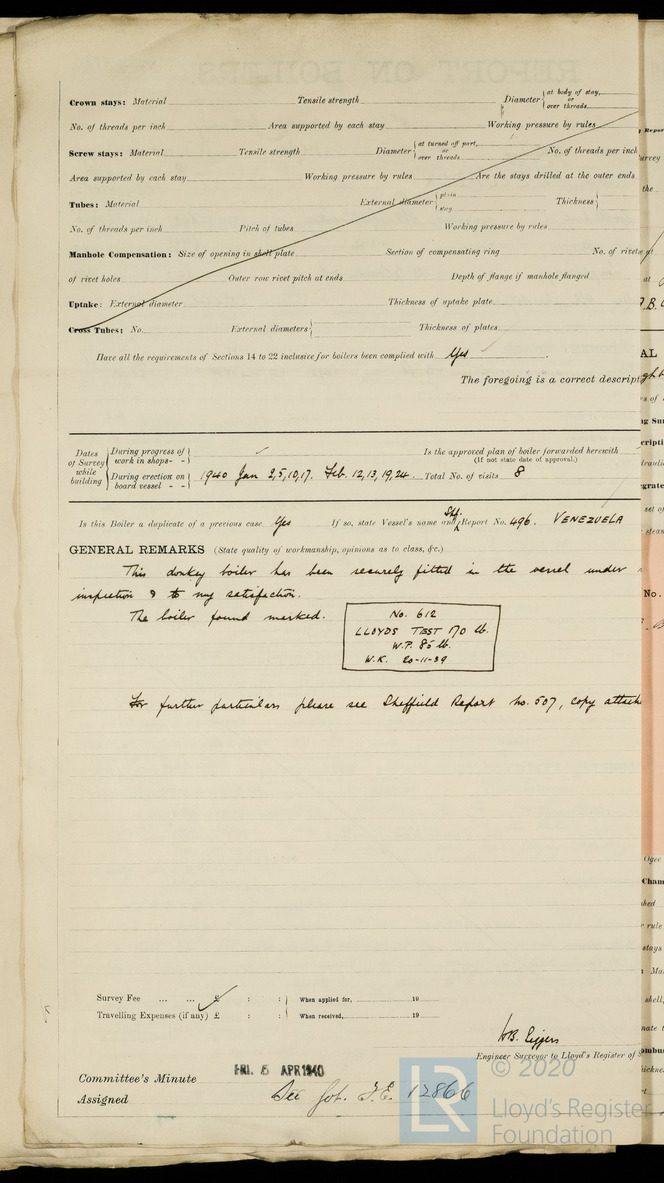 Crown stays: Material Tensile strength Diameter at body of stay, or over threads
No. of threads per inch Area supported by each stay Working pressure by rules
Screw stays: Material Tensile strength Diameter at turned off part, or over threads No. of threads per inch
Area supported by each stay Working pressure by rules Are the stays drilled at the outer ends
Tubes: Material External diameter plain stay Thickness
No. of threads per inch Pitch of tubes Working pressure by rules
Manhole Compensation: Size of opening in shell plate Section of compensating ring No. of rivets
of rivet holes Outer row rivet pitch at ends Depth of flange if manhole flanged
Uptake: External diameter Thickness of uptake plate
Cross Tubes: No. External diameters Thickness of plates
Have all the requirements of Sections 14 to 22 inclusive for boilers been complied with Yes
The foregoing is a correct descript
Dates of Survey while building
During progress of work in shops - -
During erection on board vessel - - 1940 Jan 2,5,10,17. Feb. 12,13,19,24. Total No. of visits 8
Is the approved plan of boiler forwarded herewith
(If not state date of approval.)
Is this Boiler a duplicate of a previous case Yes If so, state Vessel's name and Shf. Report No. 496. VENEZUELA
GENERAL REMARKS (State quality of workmanship, opinions as to class, &c.)
This donkey boiler has been securely fitted in the vessel under
inspection & to my satisfaction.
The boiler found marked.
No. 612
LLOYDS TEST 170 lb.
W.P. 85 lb.
W.K. 20-11-39
For further particulars please see Sheffield Report No. 507, copy attach
Survey Fee ... ... £ : : When applied for, 19
Travelling Expenses (if any) £ : : When received, 19
Engineer Surveyor to Lloyd's Register of
FRI. 5 APR 1940
Committee's Minute
Assigned
See F.E. 12866
LR
© 2020
Lloyd's Register
Foundation